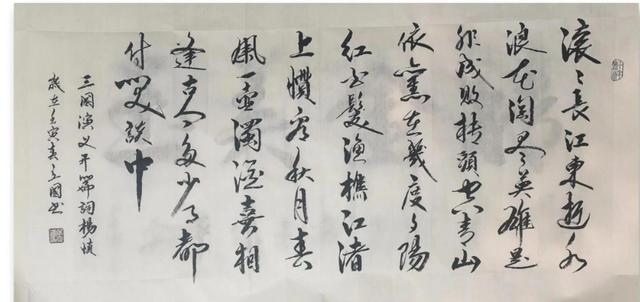 滚〻長江東逝水
浪花淘尽英雄是
非成敗转頭空青山
依舊在幾度夕陽
红白髮漁樵江渚
上慣看秋月春
風一壶濁酒喜相
逢古今多少事都
付笑談中
三国演义开篇詞楊慎
歲在壬寅春立国书